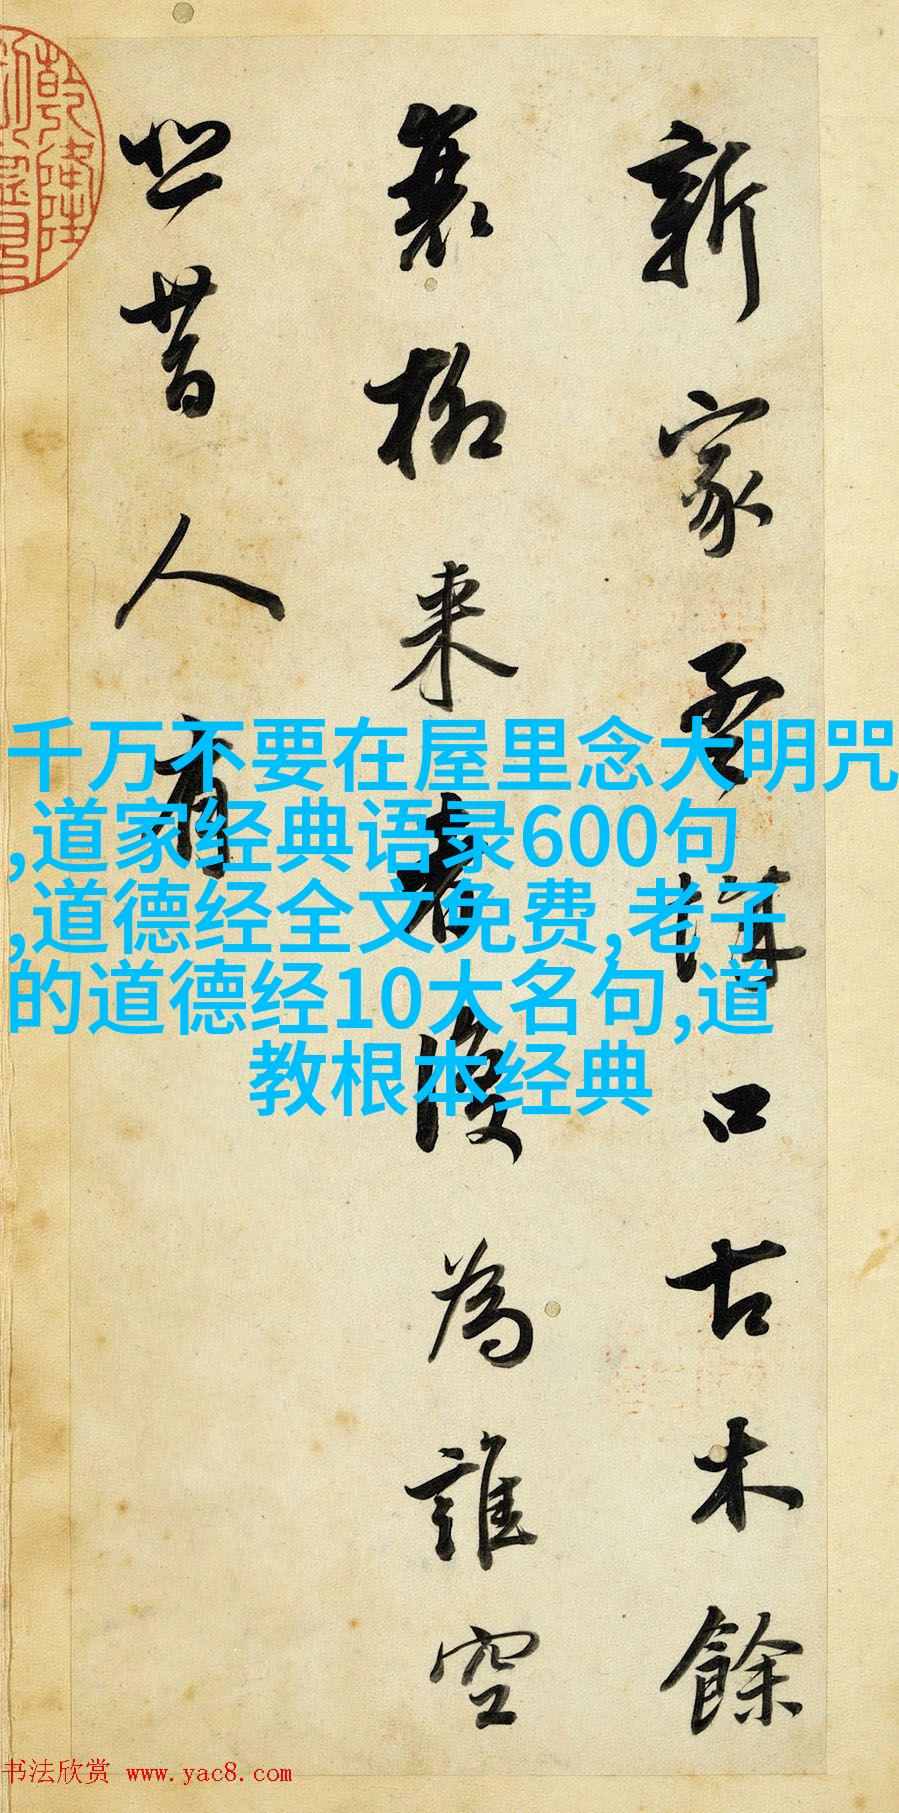 乾隆
新家孟城口古木餘
衰柳来者復為誰空
悲昔人有
千万不要在屋里念大明咒
,道家经典语录600句
,道德经全文免费,老子
的道德经10大名句,道
教根本经典
书法欣赏 www.yac8.com